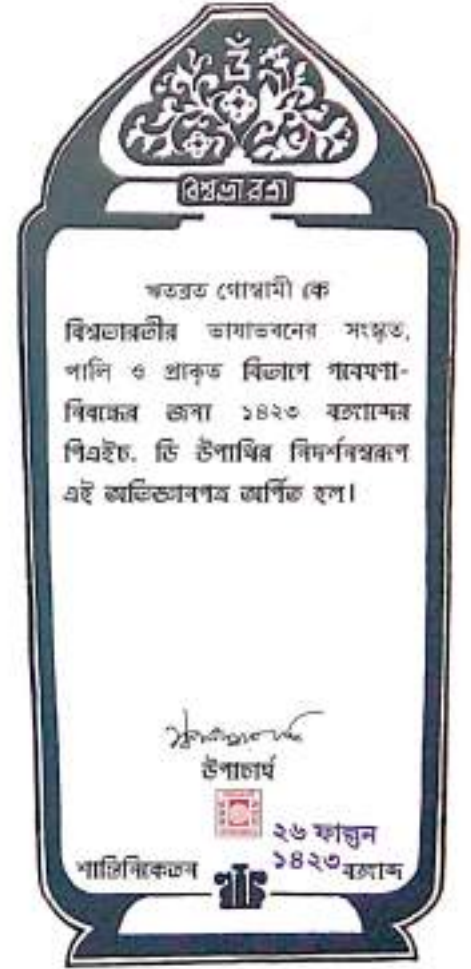 ওঁ
বিশ্বভারতী
ঋতব্রত গোস্বামী কে
বিশ্বভারতীর ভাষাভবনের সংস্কৃত,
পালি ও প্রাকৃত বিভাগে গবেষণা-
নিবন্ধের জন্য ১৪২৩ বঙ্গাব্দের
পিএইচ. ডি উপাধির নিদর্শনস্বরূপ
এই অভিজ্ঞানপত্র অর্পিত হল।
উপাচার্য
২৬ ফাল্গুন
শান্তিনিকেতন ১৪২৩ বঙ্গাব্দ